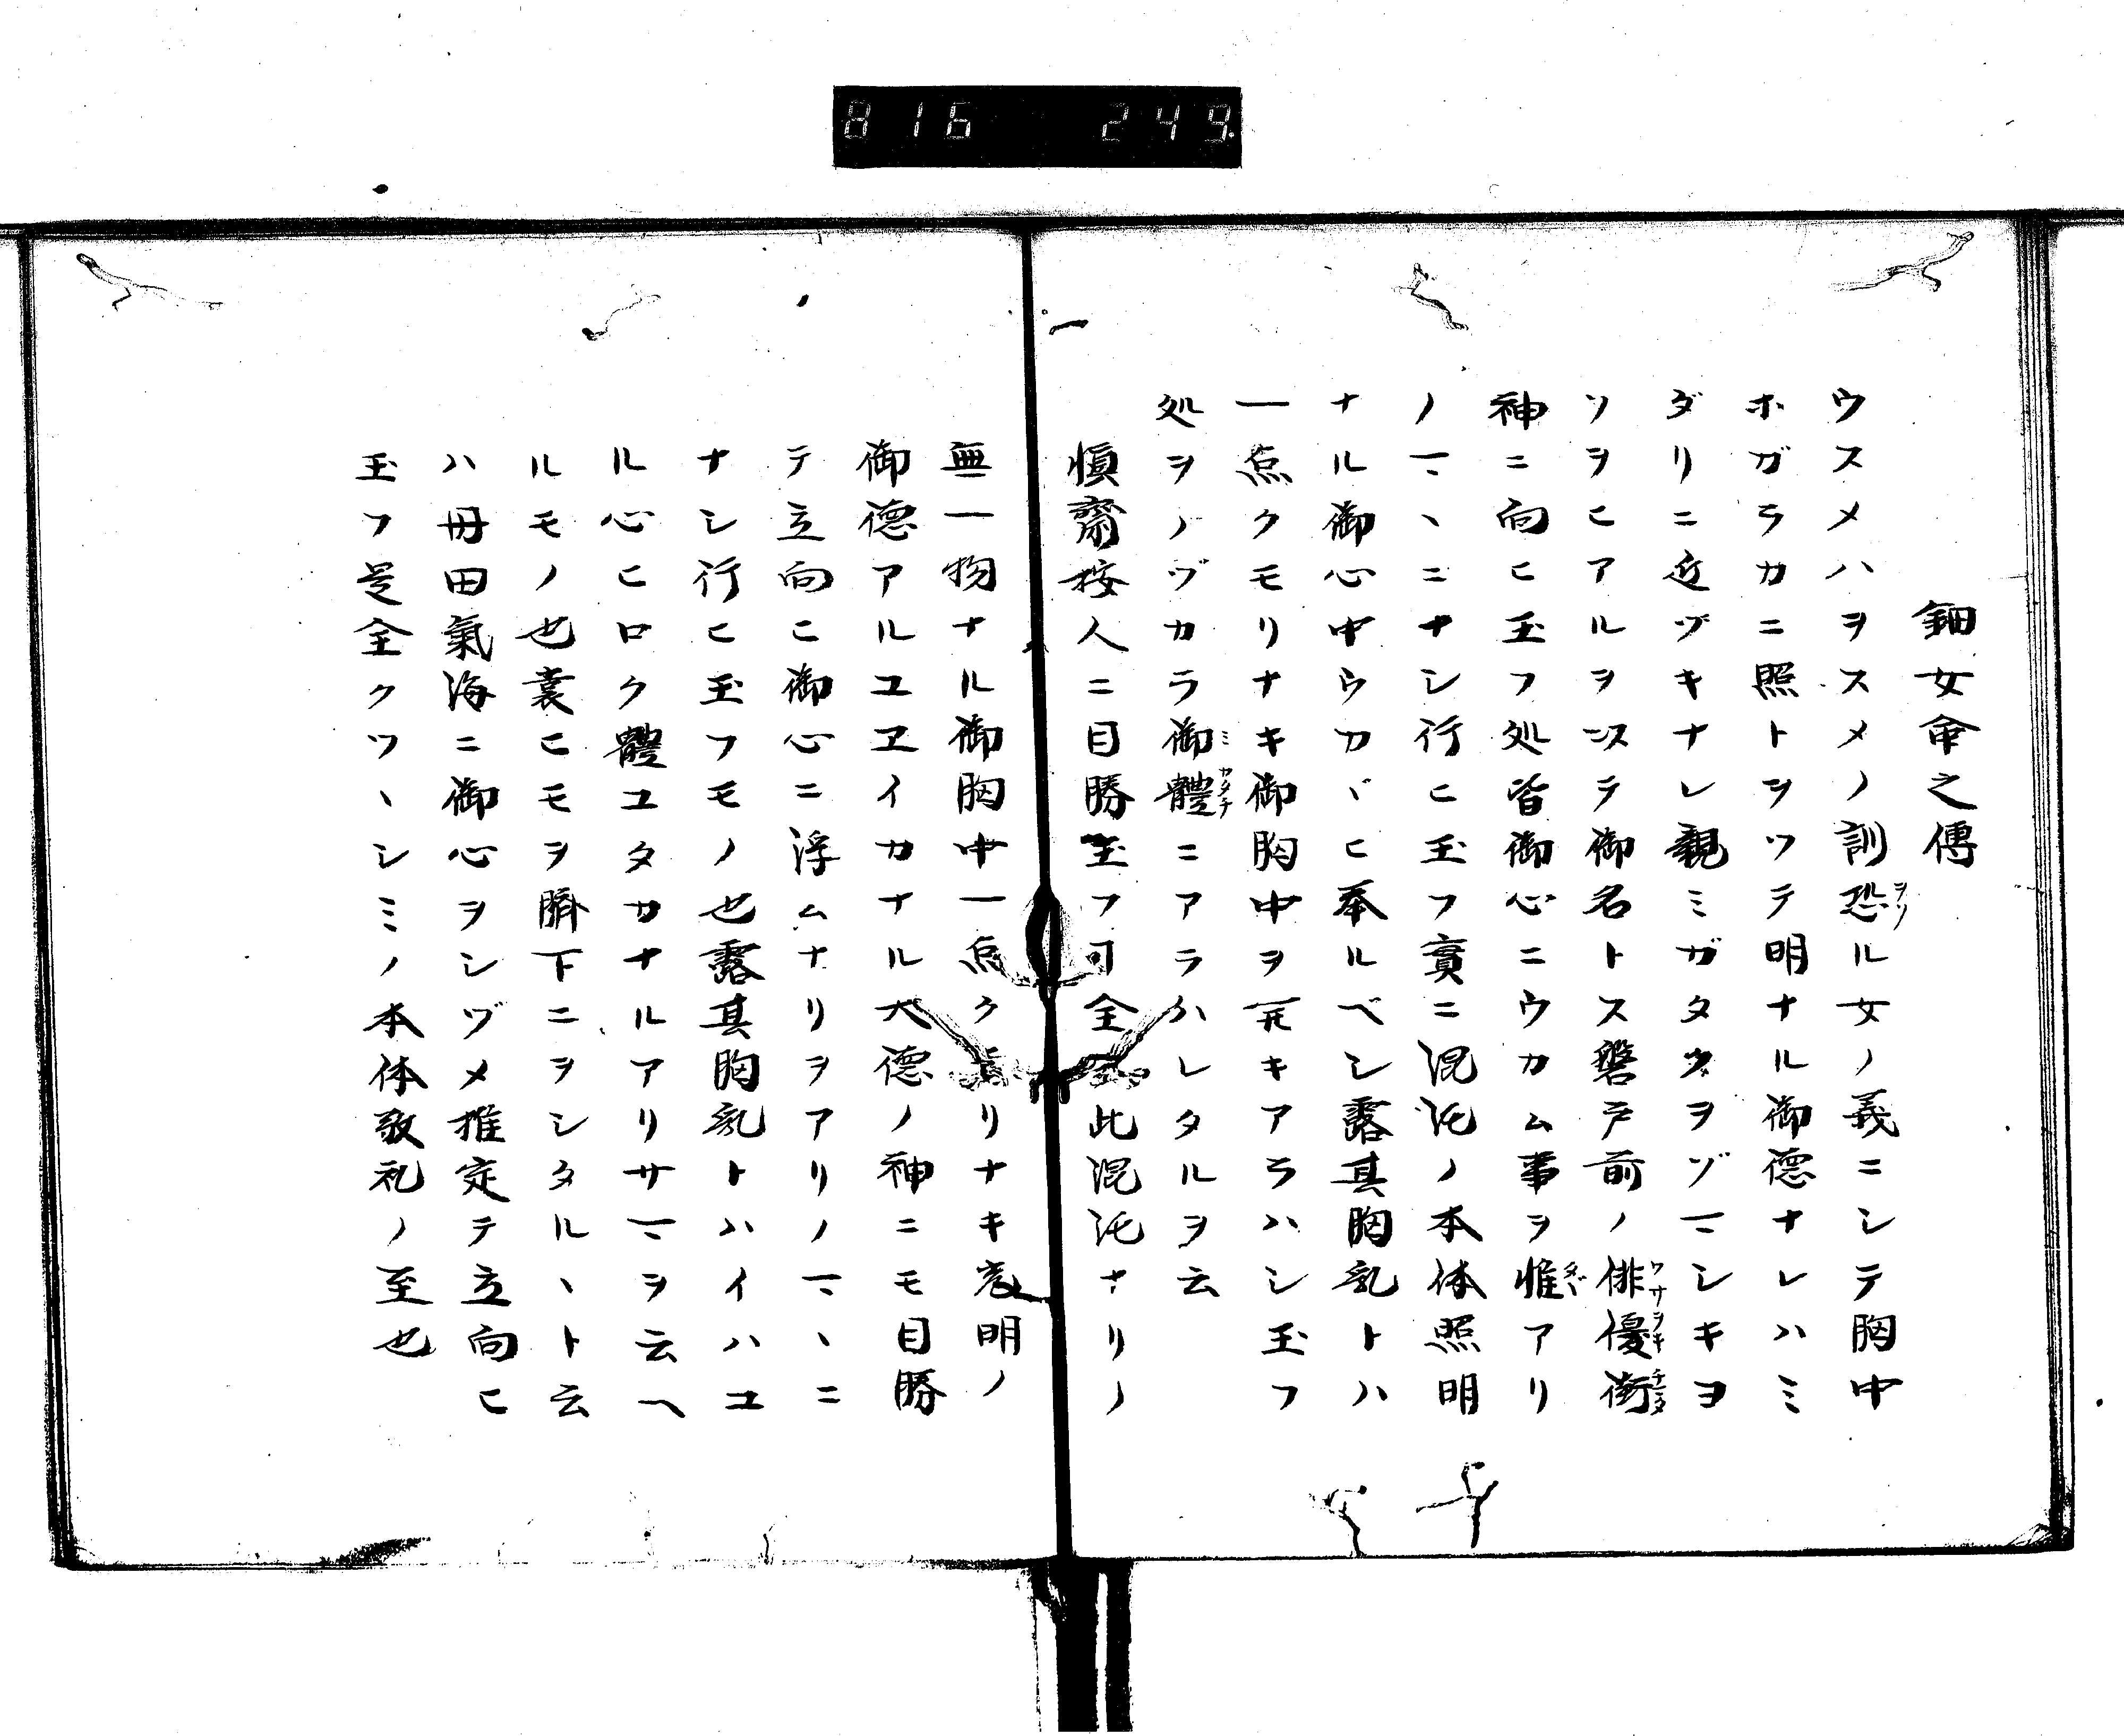 816 249.
鈿女命之傳
ウスメハヲスメノ訓恐ル女ノ義ニシテ胸中
ヲソ
ホガラカニ照トヲツテ明ナル御德ナレハミ
ダリニ近ヅキナレ親ミガタクヲゾマシキヨ
ソヲヒアルヲ以テ御名トス磐戸前ノ俳優衢
ワサヲキ チマタ
神ニ向ヒ玉フ処皆御心ニウカム事ヲ惟アリ
タヾ
ノマヽニナシ行ヒ玉フ實ニ混沌ノ本体照明
ナル御心中ウカヾヒ奉ルベシ露其胸乳トハ
一点クモリナキ御胸中ヲ開キアラハシ玉フ
処ヲノヅカラ御體ニアラハレタルヲ云
ミカタチ
慎齋按人ニ目勝玉フ可全此混沌ナリノ
無一物ナル御胸中一点クモリナキ明ノ
御德アルユヱイカナル大德ノ神ニモ目勝
テ立向ヒ御心ニ浮ムナリヲアリノマヽニ
ナシ行ヒ玉フモノ也露其胸乳トハイハユ
ル心ヒロク體ユタカナルアリサマヲ云ヘ
ルモノ也裳ヒモヲ臍下ニヲシタルヽト云
ハ丹田氣海ニ御心ヲシヅメ推定テ立向ヒ
玉フ是全クツヽシミノ本体敬礼ノ至也